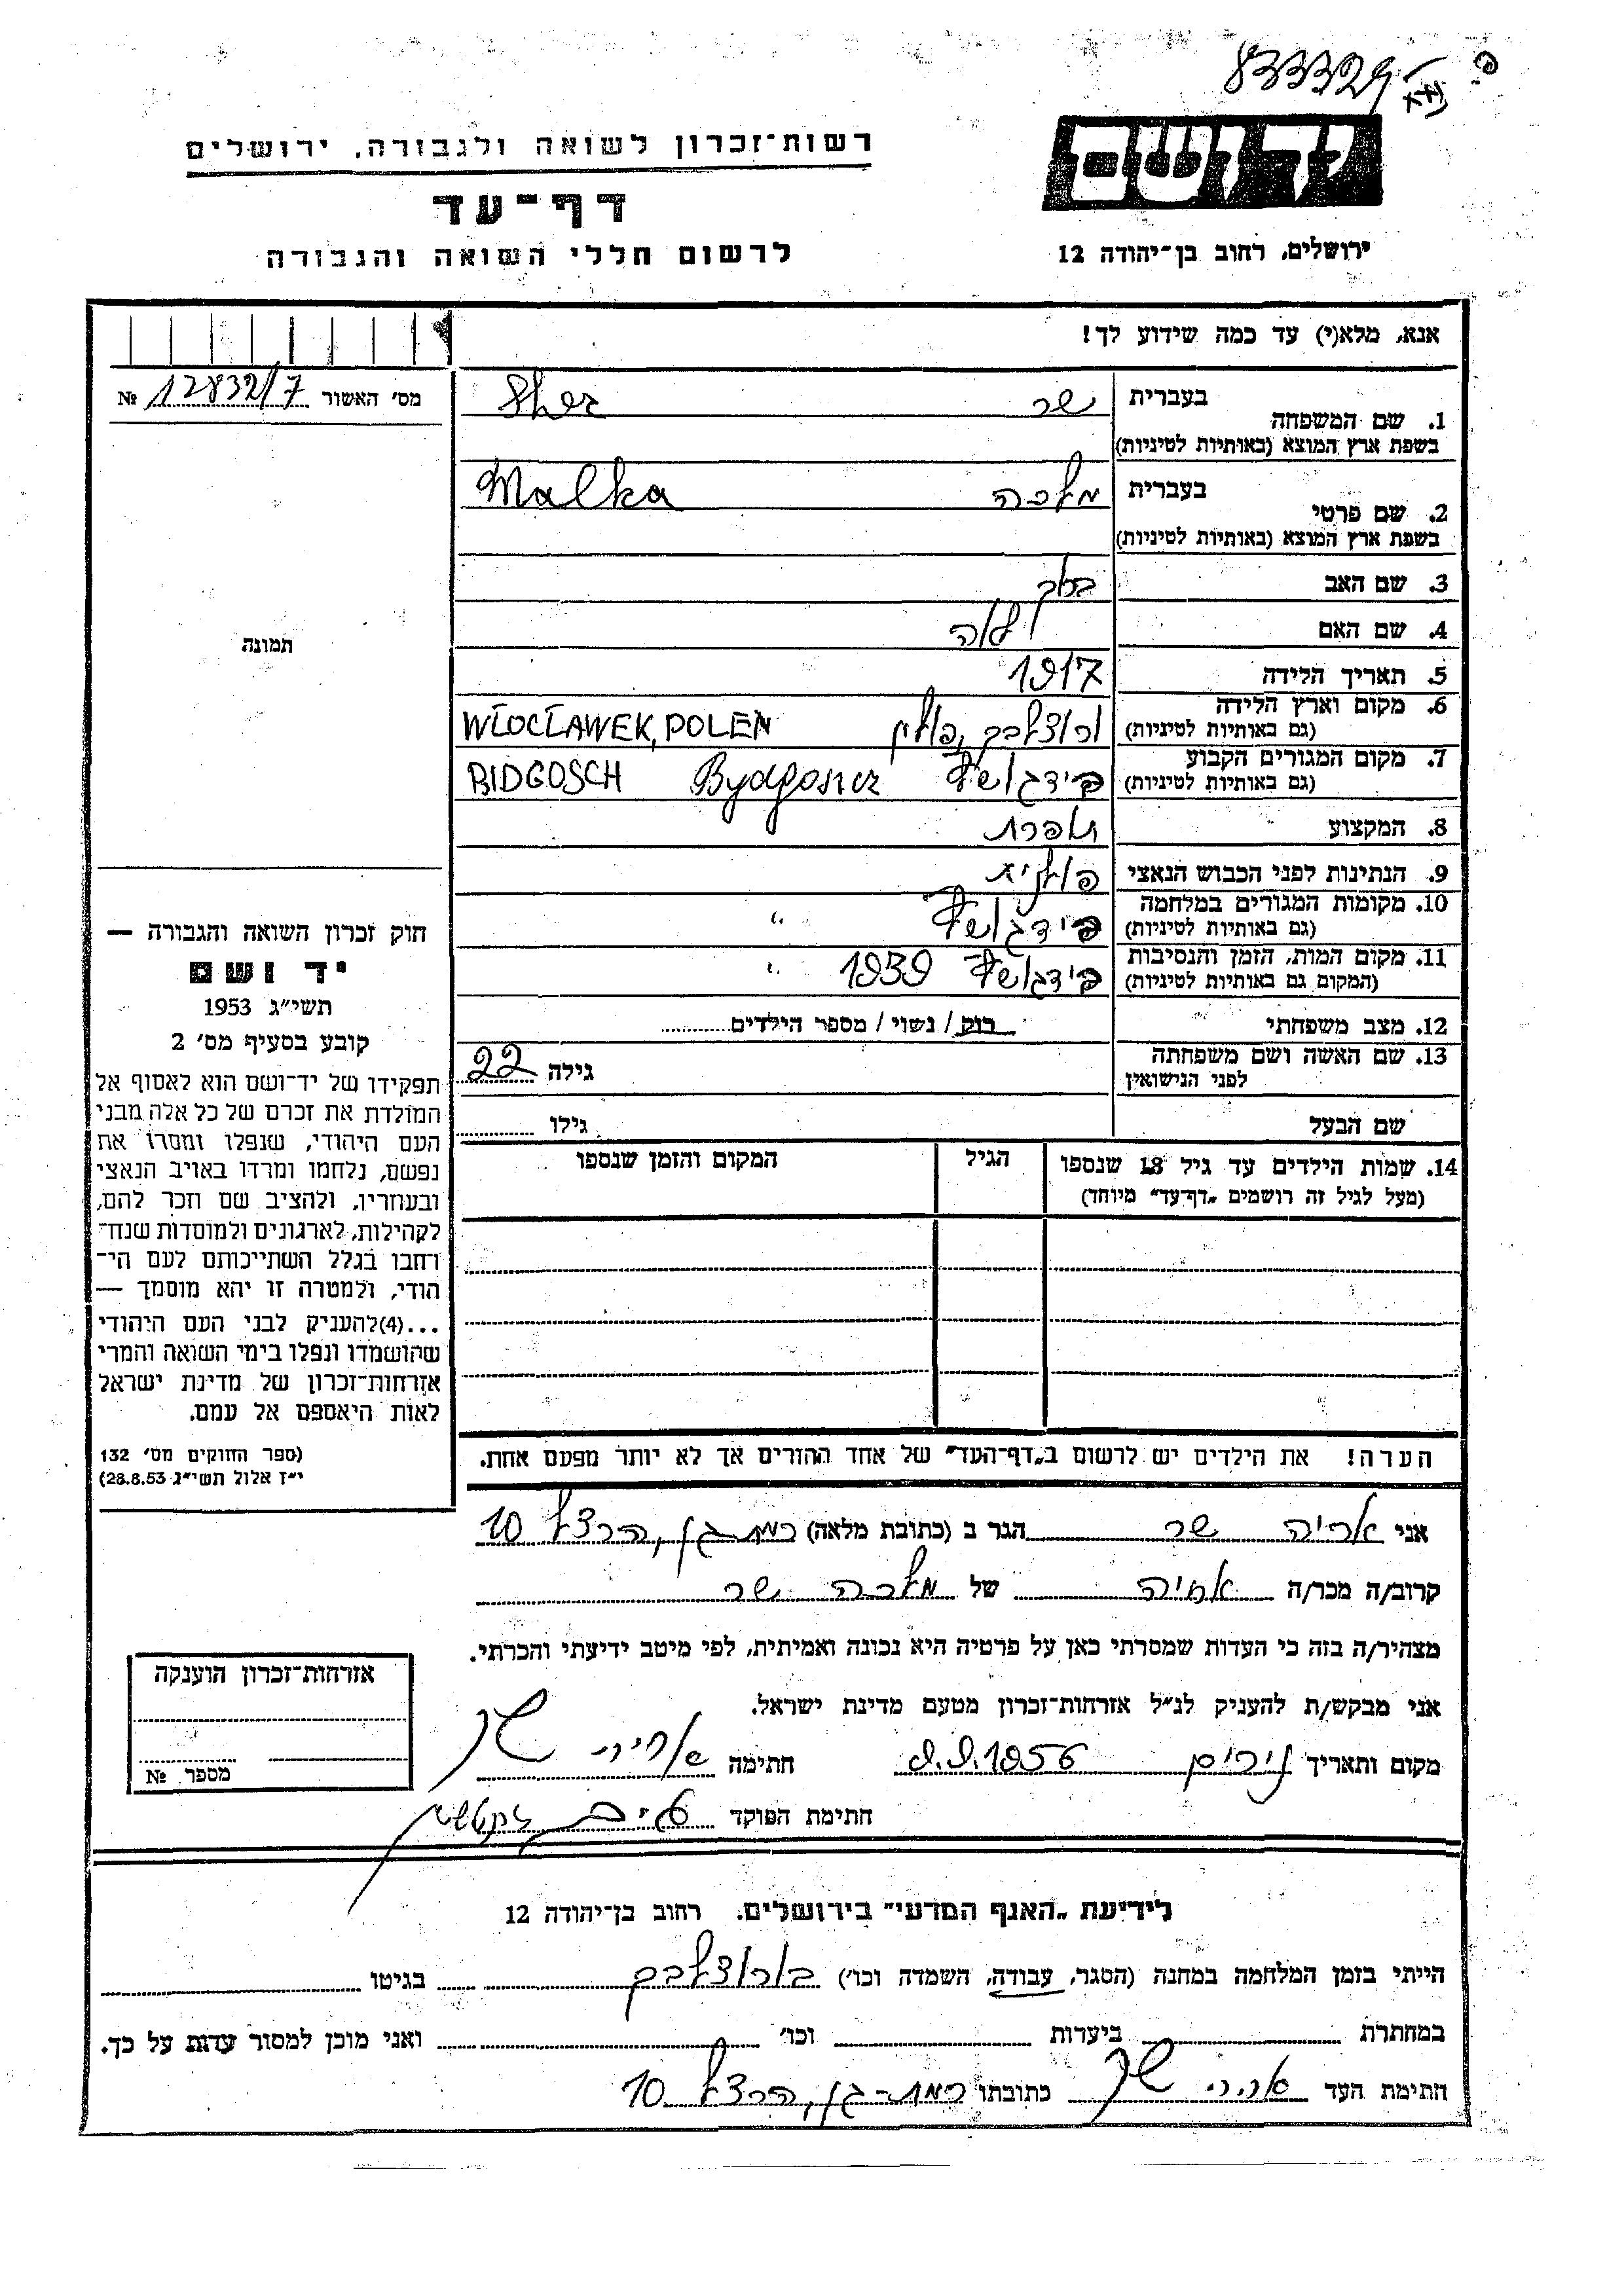 833329
רשות-זכרון לשואה ולגבורה, ירושלים
יד ושם
דף-עד
לרשום חללי השואה והגבורה
ירושלים, רחוב בן-יהודה 12
אנא, מלא(י) עד כמה שידוע לך!
מס׳ האשור 12832/7 №
1. שם המשפחה בעברית שר Sher
בשפת ארץ המוצא (באותיות לטיניות)
2. שם פרטי בעברית מלכה Malka
בשפת ארץ המוצא (באותיות לטיניות)
3. שם האב
4. שם האם לאה
5. תאריך הלידה 1917
6. מקום וארץ הלידה ולוצלבק, פולין WŁOCŁAWEK, POLEN
(גם באותיות לטיניות)
7. מקום המגורים הקבוע בידגושץ Bydgoszcz BIDGOSCH
(גם באותיות לטיניות)
8. המקצוע תופרת
9. הנתינות לפני הכבוש הנאצי פולנית
10. מקומות המגורים במלחמה בידגושץ "
(גם באותיות לטיניות)
11. מקום המות, הזמן והנסיבות בידגושץ 1939 "
(המקום גם באותיות לטיניות)
12. מצב משפחתי רוק / נשוי / מספר הילדים
13. שם האשה ושם משפחתה לפני הנישואין גילה 22
שם הבעל גילו
14. שמות הילדים עד גיל 18 שנספו הגיל המקום והזמן שנספו
(מעל לגיל זה רושמים „דף-עד" מיוחד)
הערה! את הילדים יש לרשום ב„דף-העד" של אחד ההורים אך לא יותר מפעם אחת.
תמונה
חוק זכרון השואה והגבורה —
יד ושם
תשי״ג 1953
קובע בסעיף מס׳ 2
תפקידו של יד-ושם הוא לאסוף אל
המולדת את זכרם של כל אלה מבני
העם היהודי, שנפלו ומסרו את
נפשם, נלחמו ומרדו באויב הנאצי
ובעוזריו, ולהציב שם וזכר להם,
לקהילות, לארגונים ולמוסדות שנח-
רחבו בגלל השתייכותם לעם הי-
הודי, ולמטרה זו יהא מוסמך —
...(4)להעניק לבני העם היהודי
שהושמדו ונפלו בימי השואה והמרי
אזרחות-זכרון של מדינת ישראל
לאות היאספם אל עמם.
(ספר החוקים מס׳ 132
י״ז אלול תשי״ג 28.8.53)
אני אריה שר הגר ב (כתובת מלאה) רמת-גן, הרצל 10
קרוב/ה מכר/ה אחיה של מלכה שר
מצהיר/ה בזה כי העדות שמסרתי כאן על פרטיה היא נכונה ואמיתית, לפי מיטב ידיעתי והכרתי.
אני מבקש/ת להעניק לנ״ל אזרחות-זכרון מטעם מדינת ישראל.
מקום ותאריך נירים 9.9.1956 חתימה אריה שר
חתימת הפוקד
אזרחות-זכרון הוענקה
מספר №
לידיעת „האגף המדעי" בירושלים. רחוב בן-יהודה 12
הייתי בזמן המלחמה במחנה (הסגר, עבודה, השמדה וכו׳) בולוצלבק בגיטו
במחתרת ביערות וכו׳ ואני מוכן למסור עדות על כך.
חתימת העד אריה שר כתובתו רמת-גן, הרצל 10